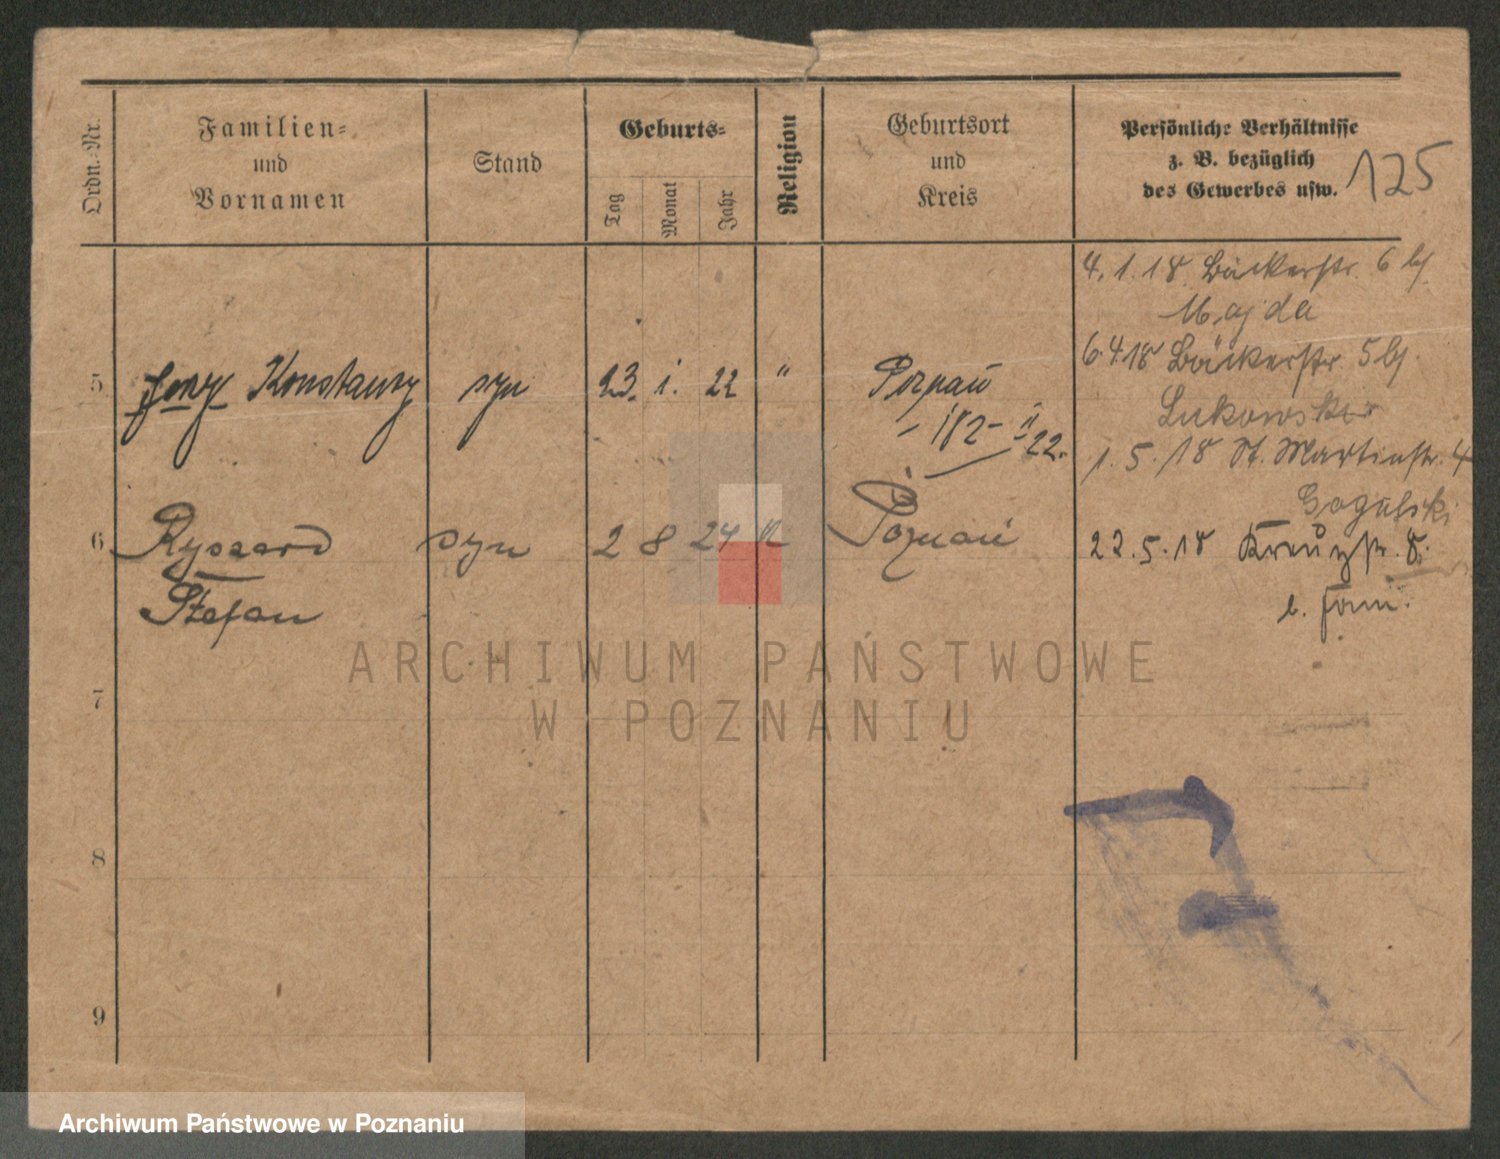 Ordn.-Nr.
Familien-
und
Vornamen
Stand
Geburts-
Tag
Monat
Jahr
Religion
Geburtsort
und
Kreis
Persönliche Verhältnisse
z. B. bezüglich
des Gewerbes usw.
125
4.1.18 Bäckerstr. 6 bj
Majda
6.4.18 Bäckerstr 5 bj.
Lukowska
1.5.18 St. Martinstr. 4
Gogulski
22.5.18 Kreuzstr. 8.
b. Fami.
5 Jerzy Konstanty syn 23. 1. 22 " Poznań
182 - II 22.
6 Ryszard syn 2 8 24 Poznań
Stefan
7
8
9
ARCHIWUM PAŃSTWOWE
W POZNANIU
Archiwum Państwowe w Poznaniu